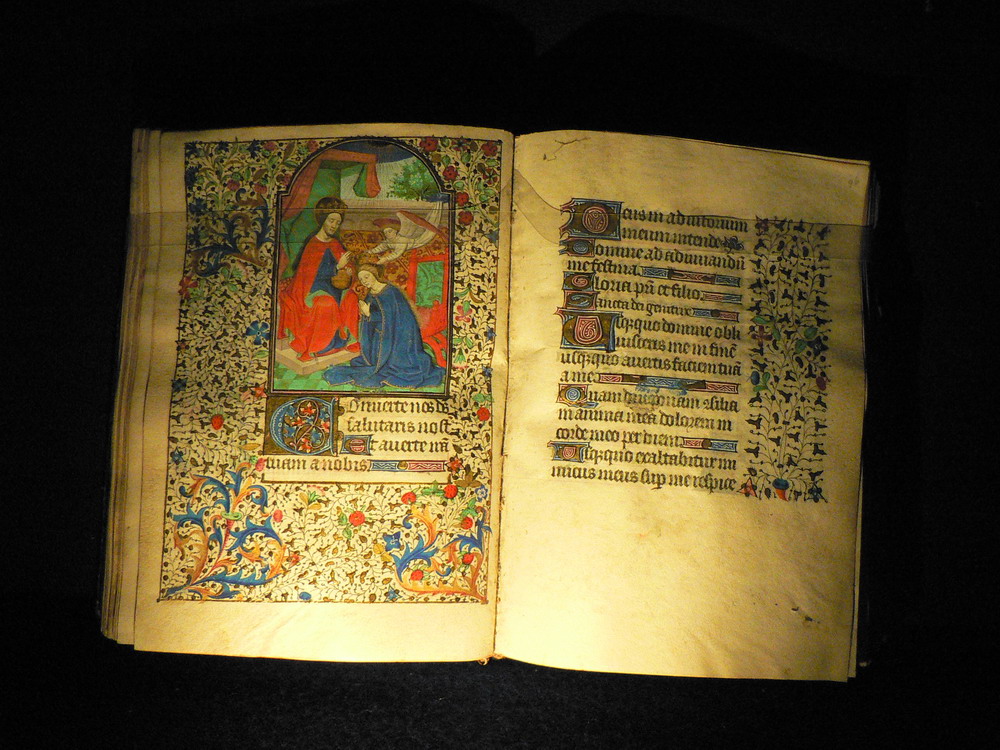 Converte nos ds
salutaris nost
et averte irā
tuam a nobis
Deus in adiutorium
meum intende
Domine ad adiuvandū
me festina
Gloria pri et filio
Sicut
Usquequo domine obli
visceris me in finē
usquequo avertis faciem tuā
a me
Quam diu ponam cōsilia
in anima mea dolorem in
corde meo per diem
Usquequo exaltabitur ini
micus meus sup me respice